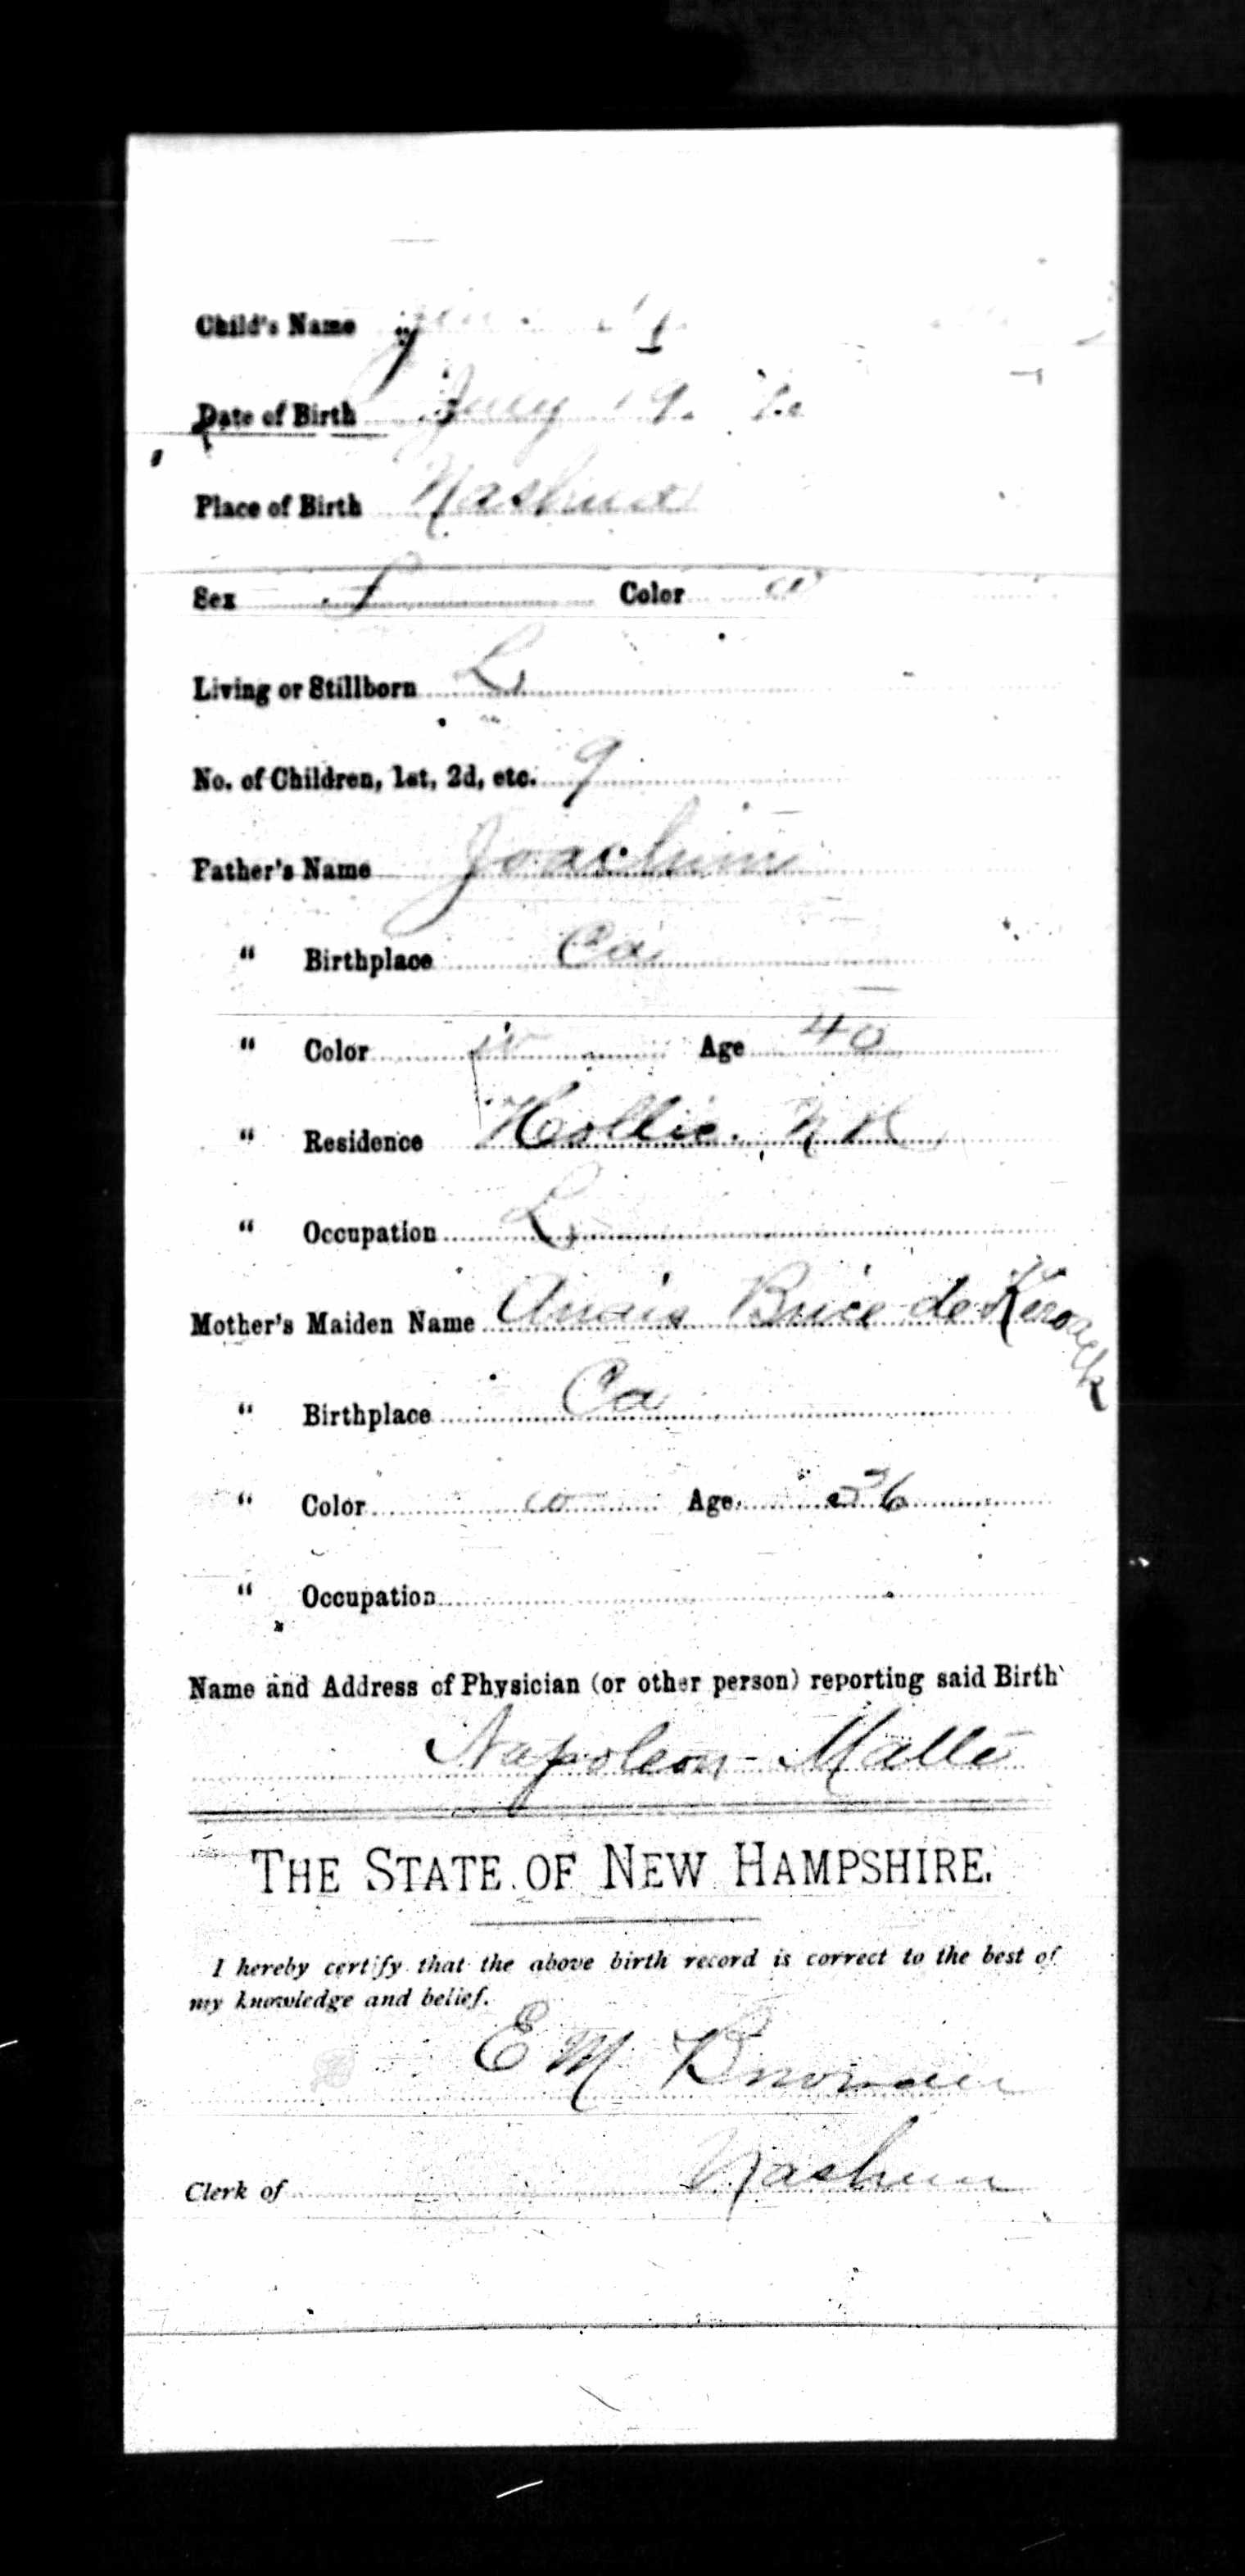 Child's Name
Date of Birth July 19.
Place of Birth Nashua
Sex f Color w
Living or Stillborn L
No. of Children, 1st, 2d, etc. 9
Father's Name Joachim
" Birthplace Ca
" Color w Age 40
" Residence Hollis. N H
" Occupation L
Mother's Maiden Name Anais Brice de Keroack
" Birthplace Ca
" Color w Age 36
" Occupation
Name and Address of Physician (or other person) reporting said Birth
Napoleon Malle
THE STATE OF NEW HAMPSHIRE.
I hereby certify that the above birth record is correct to the best of
my knowledge and belief.
E M
Clerk of Nashua